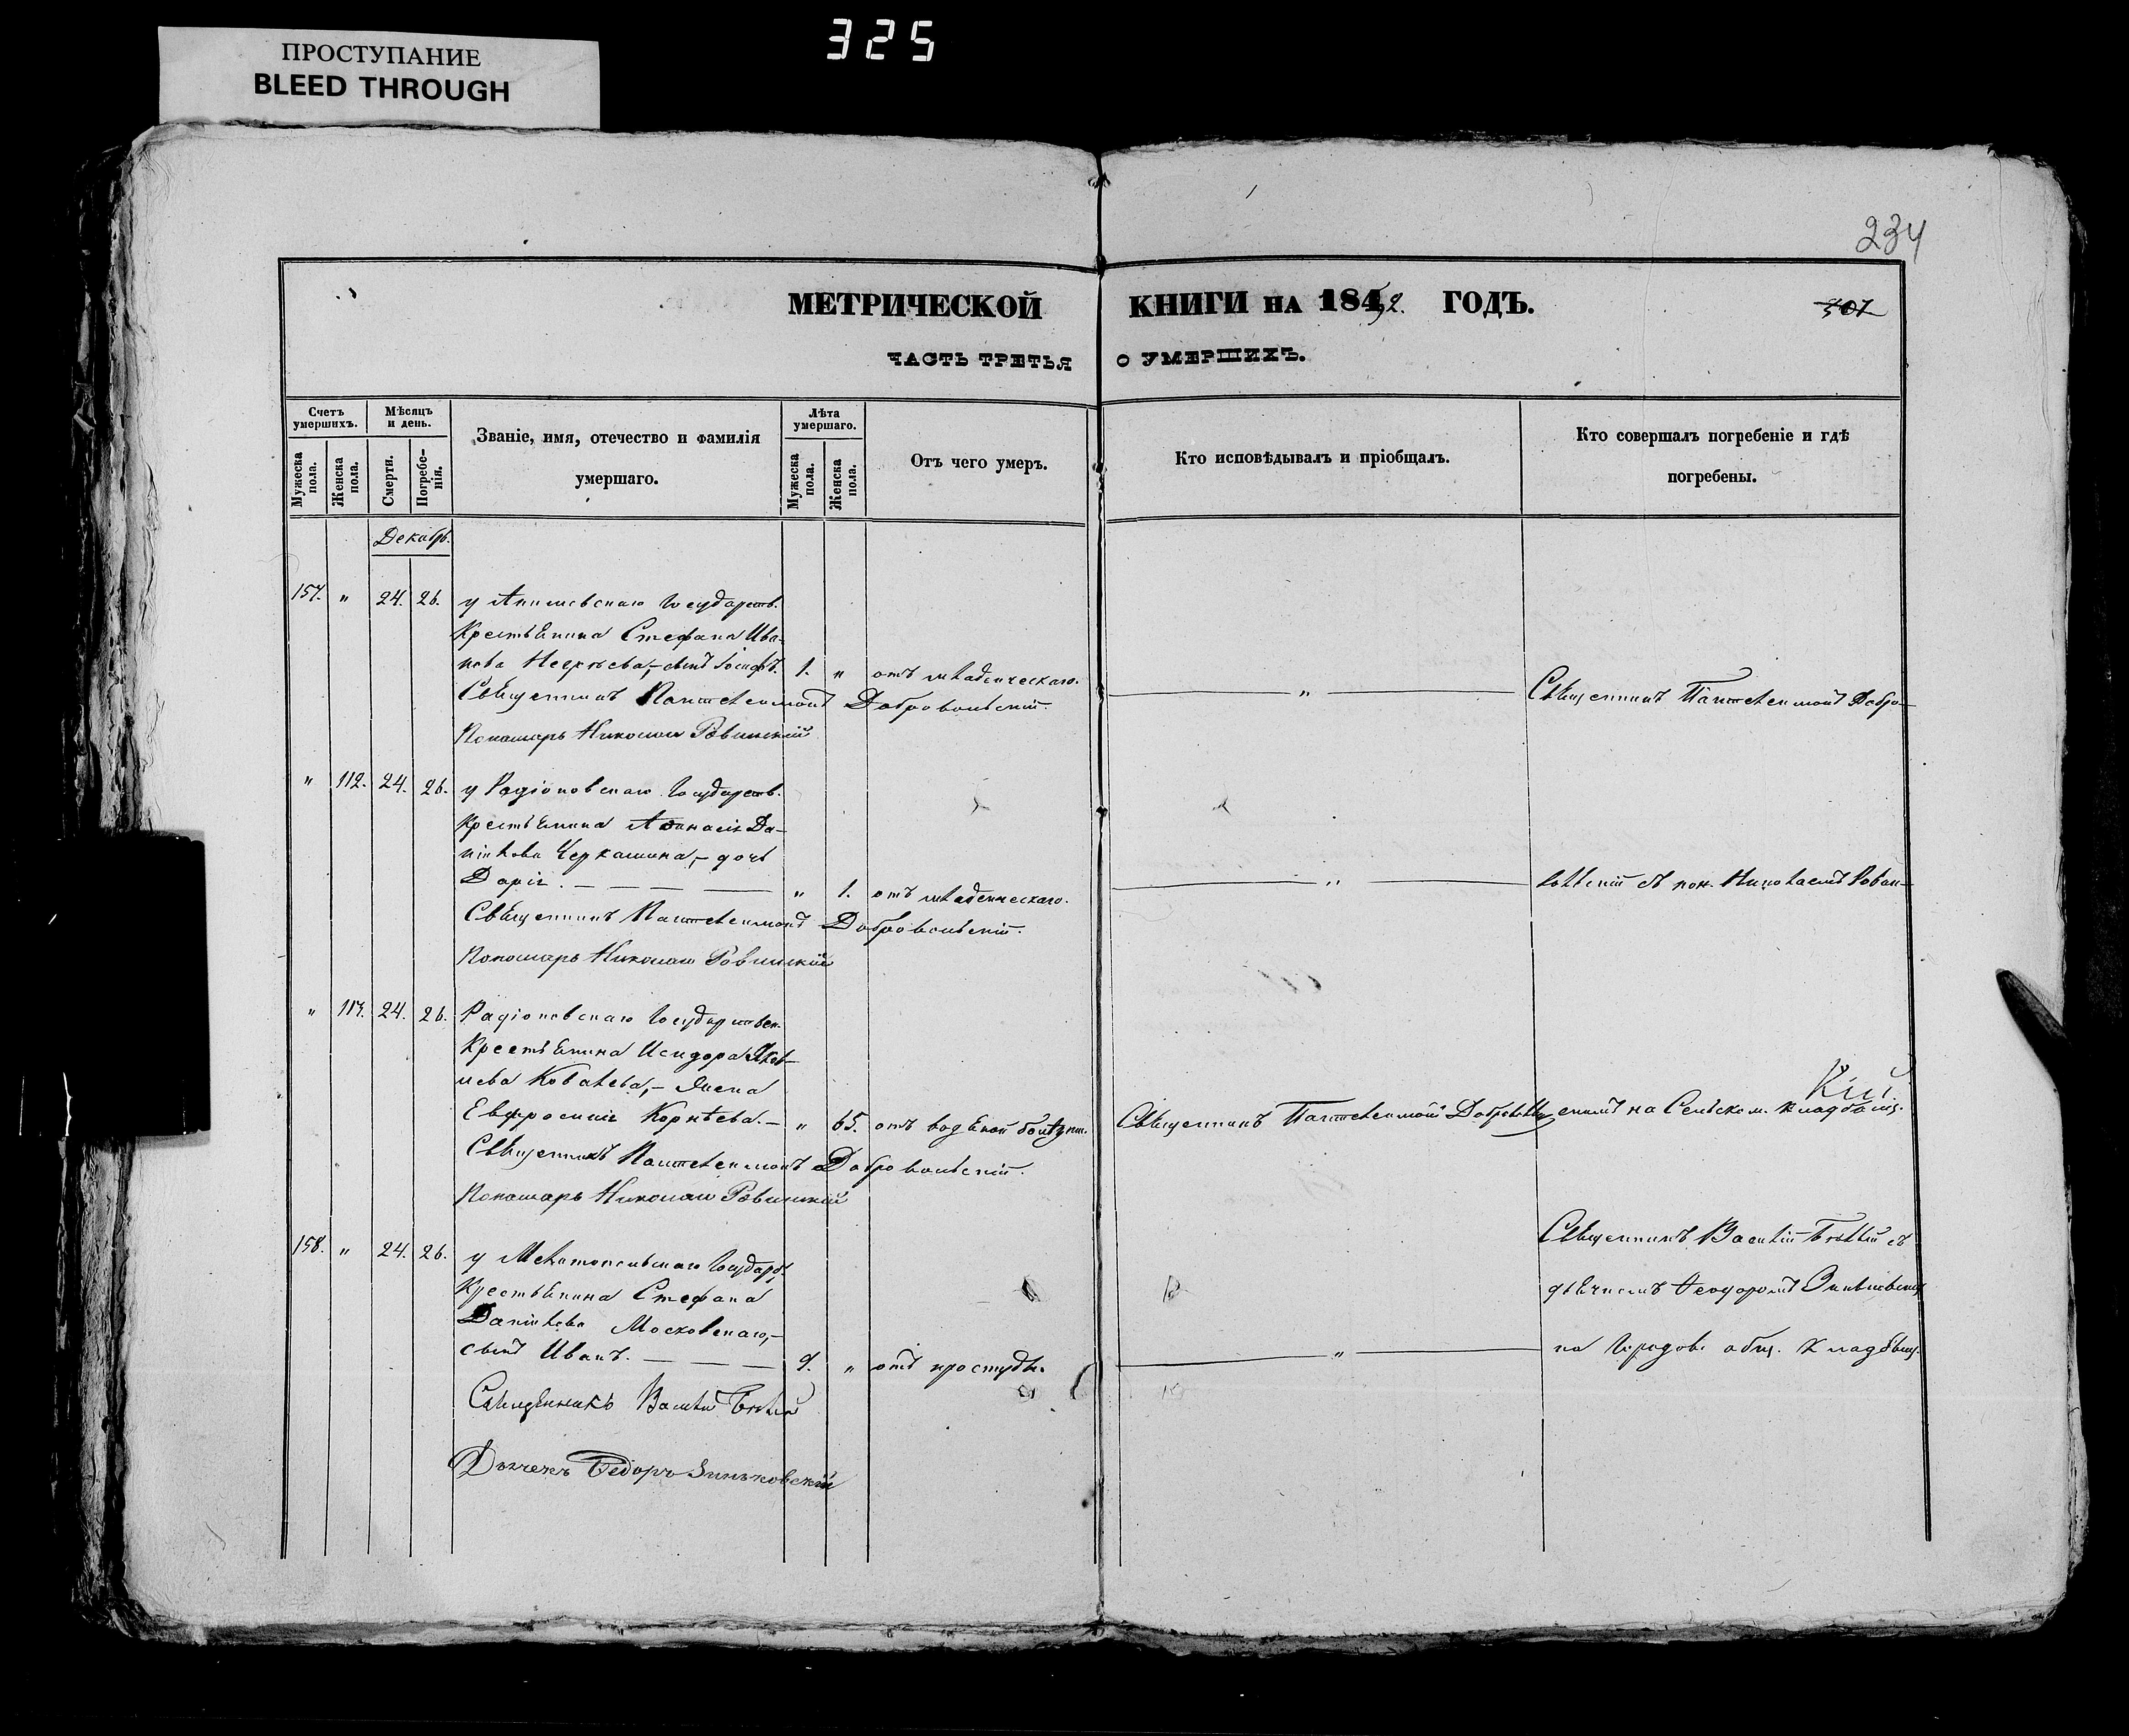 ПРОСТУПАНИЕ
BLEED THROUGH
325
234
МЕТРИЧЕСКОЙ КНИГИ НА 1852. ГОДЪ.
ЧАСТЬ ТРЕТЬЯ О УМЕРШИХЪ.
Счетъ умершихъ.
Мѣсяцъ и день.
Званіе, имя, отечество и фамилія умершаго.
Лѣта умершаго.
Отъ чего умеръ.
Кто исповѣдывалъ и пріобщалъ.
Кто совершалъ погребеніе и гдѣ погребены.
Мужеска пола.
Женска пола.
Смерти.
Погребенія.
Мужеска пола.
Женска пола.
Декабр.
157. " 24. 26. у Государств.
Крестьянина Стефана Ива-
нова сынъ Іосифъ. 1. " отъ младенческаго. "
Священникъ Пантелеимонъ Добровольскій. Священникъ Пантелеимонъ Добро-
Пономарь Николай Ровинскій
" 112. 24. 26. у Радіоновскаго Государств.
Крестьянина Аѳанасія Да-
нилова Черкашина, – дочь
Дарія. " 1. отъ младенческаго. " вольскій съ пон. Николаемъ Ровин-
Священникъ Пантелеимонъ Добровольскій.
Пономарь Николай Ровинскій
" 24. 26. Радіоновскаго Государствен.
Крестьянина Исидора Яков-
лева Ковалева, – жена
Евфросинія Корнѣева. – " 65. отъ водяной болѣзни. Священникъ Пантелеимонъ на Сельском. кладбищ.
Священникъ Пантелеимонъ Добровольскій.
Пономарь Николай Ровинскій
158. " 24. 26. у Мелитопольскаго Государ.
Крестьянина Стефана
Данилова Московскаго, –
сынъ Иванъ. 9. " отъ простуды. "
Священникъ Василій Бѣлый съ
дьячкомъ Феодоромъ
на Городов. общ. кладбищ.
Священникъ Василій Бѣлый
Дьячекъ Федоръ Зиньковскій